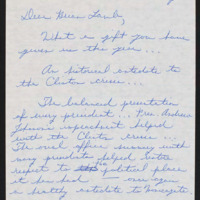 Dear Brian Lamb,
What a gift you have
given us this year ...
An historical antidote to
the Clinton crisis...
The balanced presentation
of every president ... Pres Andrew
Johnson's impeachment helped
with the Clinton crisis ...
The oval office
every president helped
respect to political place
it has had ...
a healthy antidote to